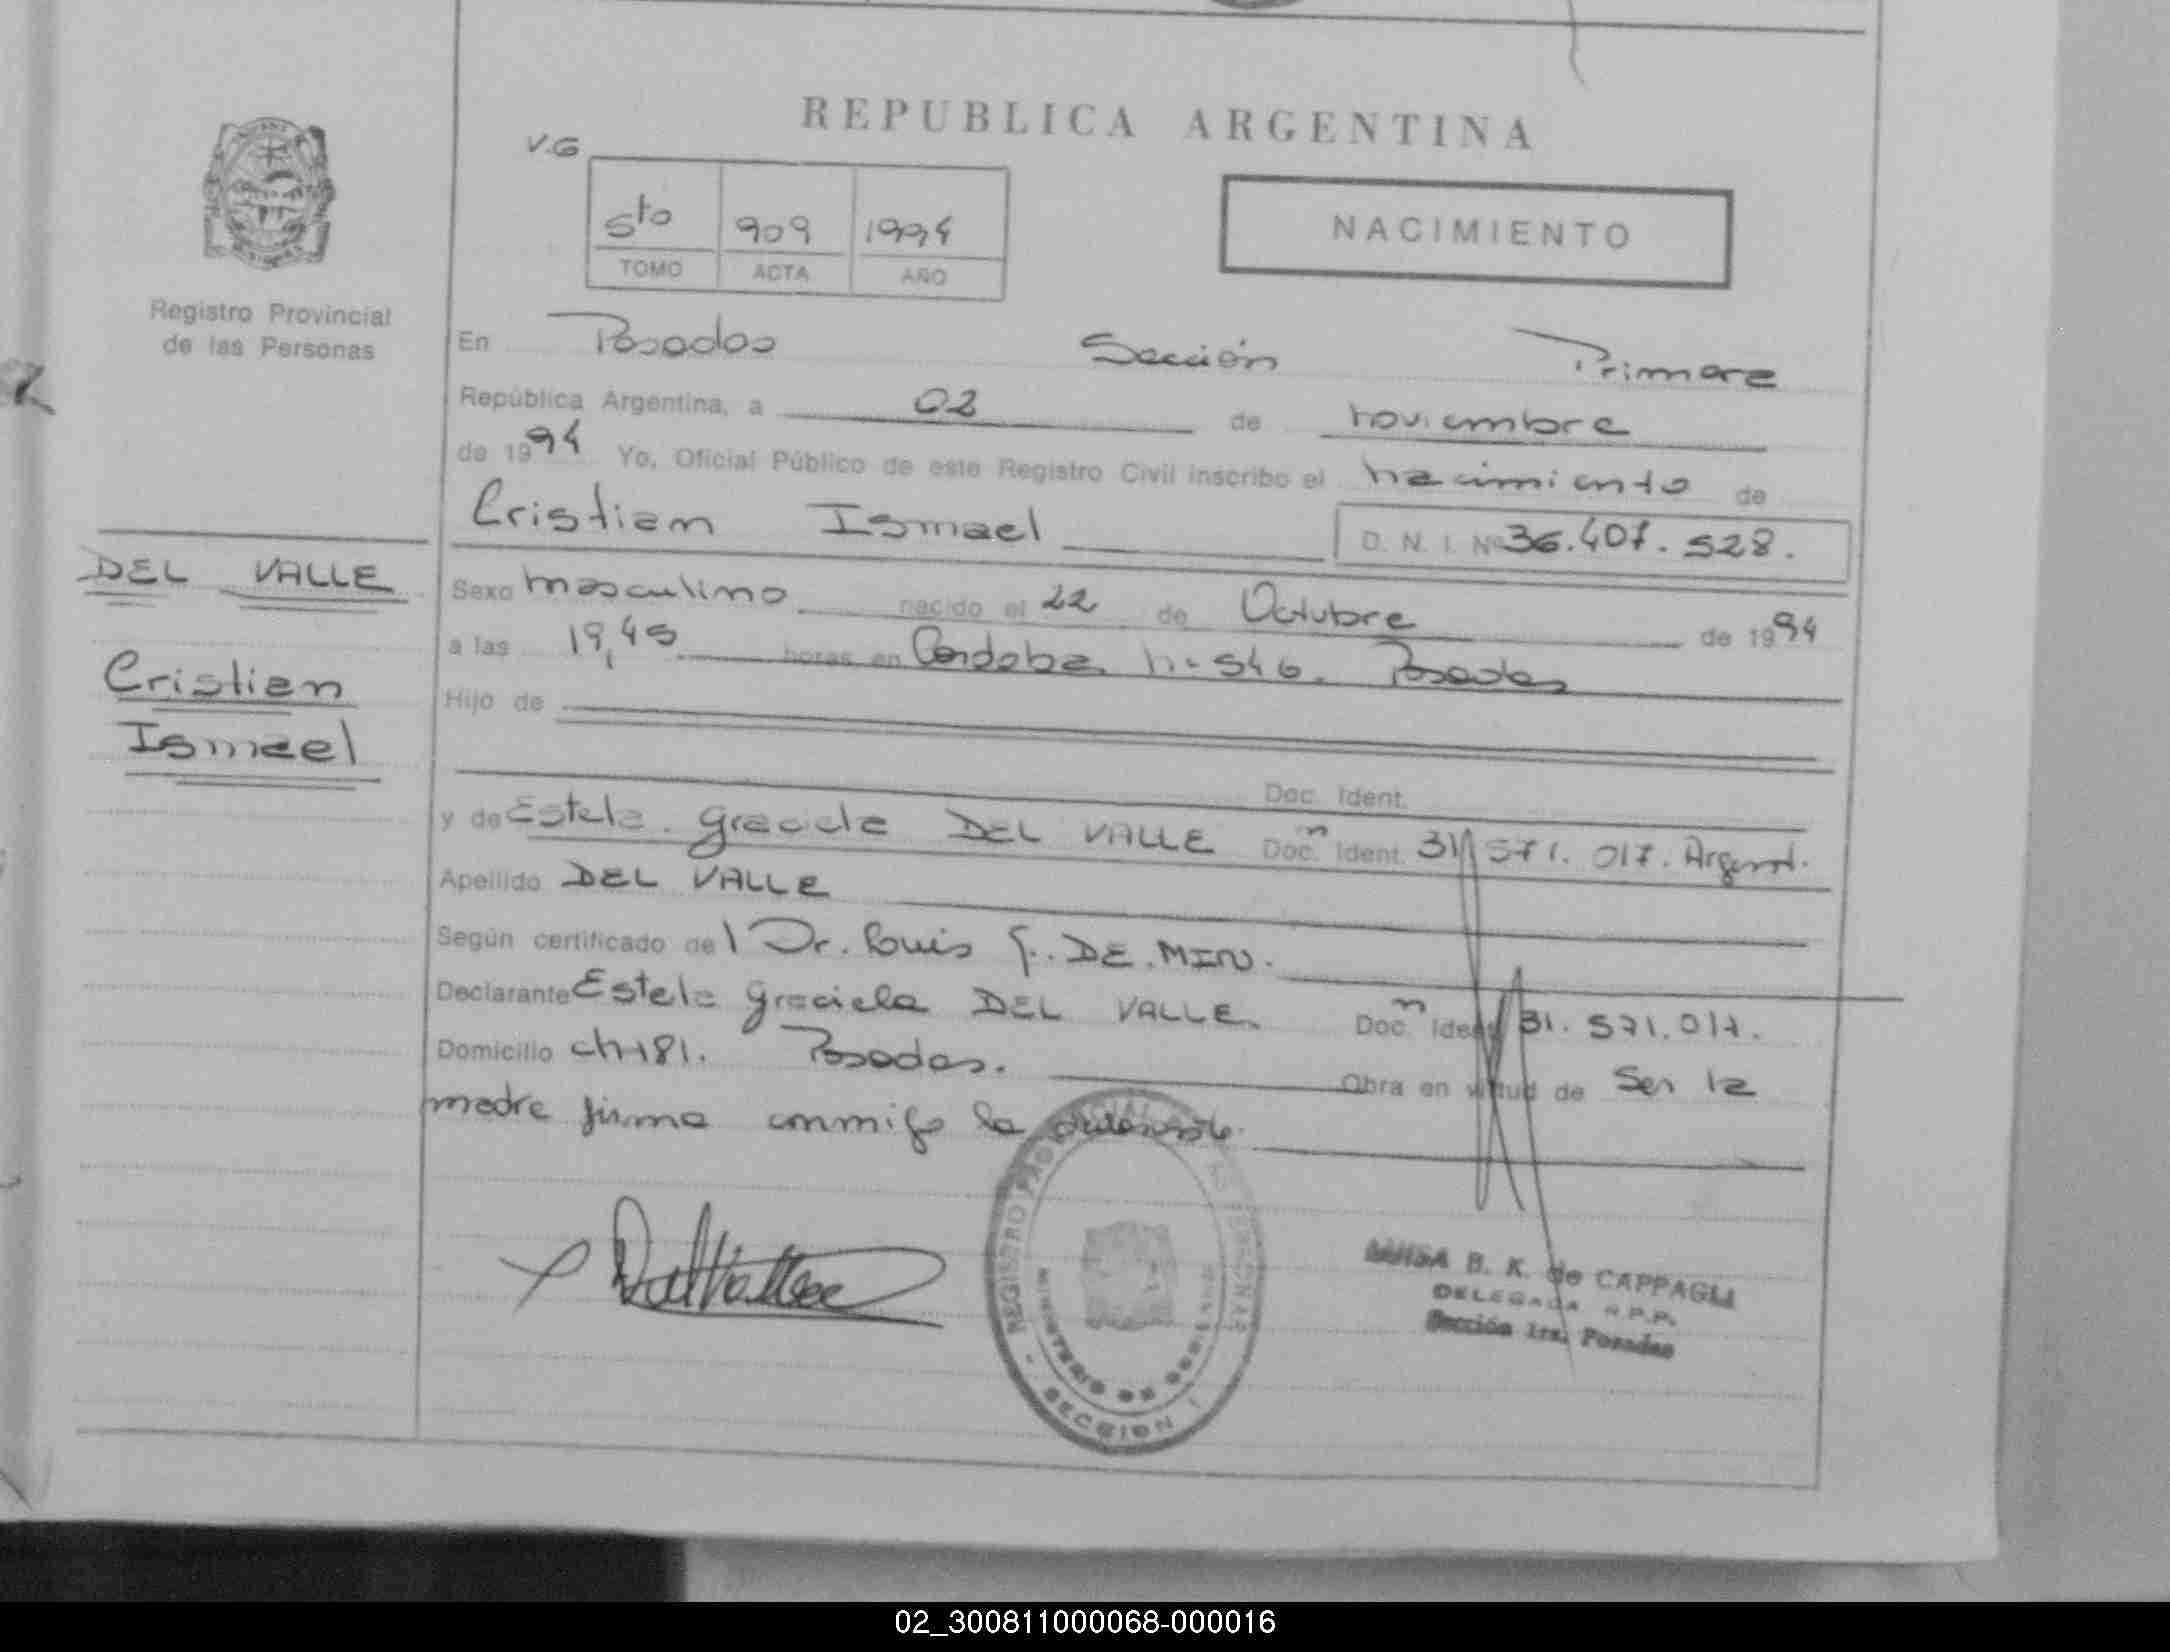 REPUBLICA ARGENTINA
V.G
5to 909 1994
TOMO ACTA AÑO
NACIMIENTO
Registro Provincial
de las Personas
En Posadas Sección Primera
República Argentina, a 02 de noviembre
de 1994 Yo, Oficial Público de este Registro Civil inscribo el nacimiento de
Cristian Ismael D. N. I. Nº 36.407.528.
DEL VALLE
Cristian
Ismael
Sexo masculino nacido el 22 de Octubre de 1994
a las 19,45 horas en Cordoba nº 546. Posadas
Hijo de
Doc. Ident.
y de Estela Graciela DEL VALLE Doc. n Ident. 31.571.017. Argent.
Apellido DEL VALLE
Según certificado del Dr. Luis G. DE.MIN.
Declarante Estela Graciela DEL VALLE. Doc. n Ident 31.571.017.
Domicilio ch 181. Posadas. Obra en virtud de Ser la
madre firma conmigo la
Del Valle
REGISTRO PROVINCIAL DE LAS PERSONAS
MINISTERIO DE GOBIERNO
SECCION 1
LUISA B. K. de CAPPAGLI
DELEGADA R.P.P.
Sección 1ra. Posadas
02_300811000068-000016